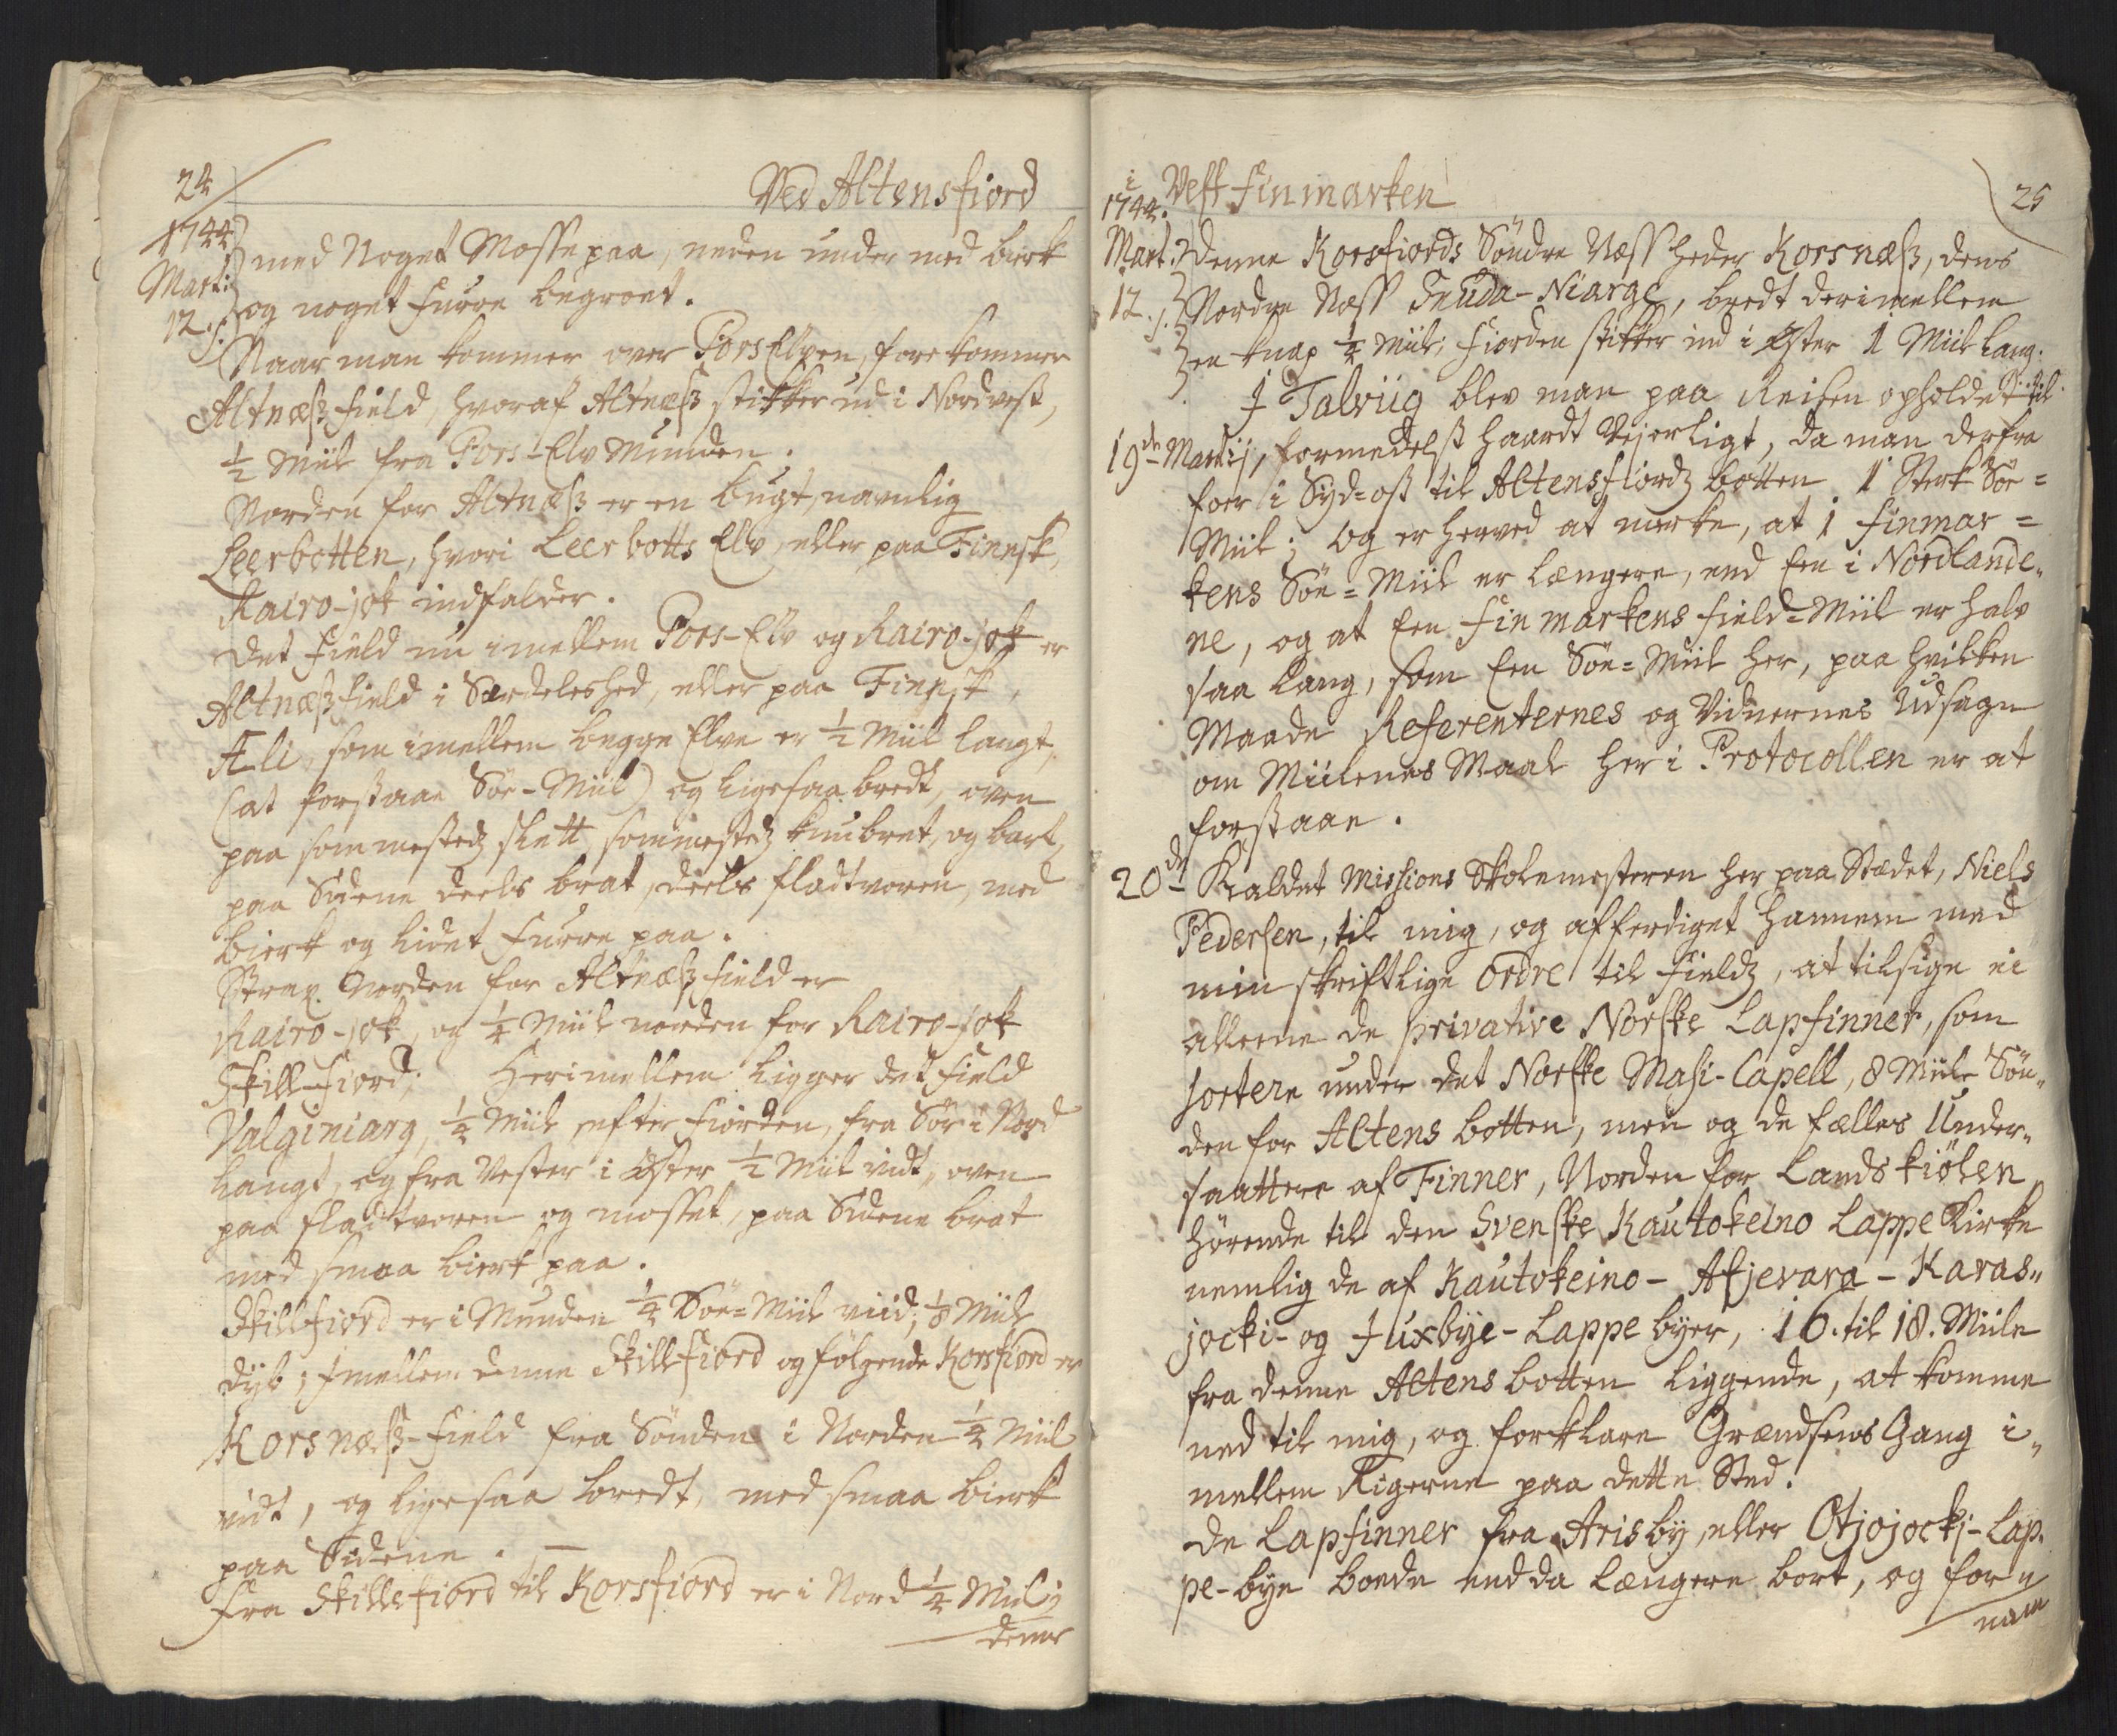 24
Ved Altensfiord
1744
Martii
12.
med Noget Mosse paa, neden under med birk
og noget Furre begroet.
Naar man kommer over Pors Elven, forekommer
Altnæß field, hvoraf Altnæß stikker ud i Nordvest,
½ Miil fra Pors-Elv Munden.
Norden for Altnæß er en bugt, navnlig
Leerbotten, hvori Leerbotts Elv, eller paa Finnsk,
Rairo-jok indfalder.
Det Field nu imellem Pors-Elv og Rairo-jok er
Altnæß field i Særdeleshed, eller paa Finnsk,
Ali, som imellem begge Elve er ½ Miil langt,
(at forstaae Söe-Miil) og ligesaa bredt, oven
paa sommesteds slett, sommesteds knubret, og bart,
paa Sidene deels brat, deels fladtvoren, med
birk og lidet Furre paa.
Strax Norden for Altnæß field er
Rairo-jok, og ¼ Miil norden for Rairo-jok
Skillefiord; Herimellem ligger det field
Valginiarg, ¼ Miil efter Fiorden, fra Sör i Nord
langt, og fra Vester i Öster ½ Miil vidt, oven
paa fladtvoren og mosset, paa Sidene brat
med smaa birk paa.
Skillfiord er i Munden ¼ Söe=Miil viid, ⅛ Miil
dyb; Imellem denne Skillfiord og fölgende Korsfiord er
Korsnæß-Field fra Sönden i Norden ¼ Miil
vidt, og ligesaa bredt, med smaa birk
paa Sidene. —
Fra Skillefiord til Korsfiord er i Nord ¼ Miil;
denne
i Vest Finmarken
25
1744.
Mart:
12.
Denne Korsfiords Söndre Næss heder Korsnæß, dens
Nordre Næss Snuda-Niarg, bredt derimellem
en knap ¼ Miil; Fiorden stikker ind i Öster 1 Miil lang.
I Talviig blev man paa Reisen opholdet til
19de Martij, formedelst haardt Vejerligt, da man derfra
foer i Syd=ost til Altensfiords botten 1 Sterk Söe=
Miil; Og er herved at merke, at i Finmar=
kens Söe=Miil er længere, end Een i Nordlande„
ne, og at Een Finmarkens field=Miil er halv
saa lang, som Een Söe=Miil her, paa hvilken
Maade Referenternes og Vidnernes Udsagn
om Miilenes Maal her i Protocollen er at
forstaae.
20de Kaldet Missions Skolemesteren her paa Stædet, Niels
Pedersen, til mig, og affærdiget hannem med
min skriftlige Ordre til Fields, at tilsige ei
alleene de privative Norske Lapfinner, som
sortere under det Norske Masi-Capell, 8 Miile Sön„
den for Altens botten, men og de fælles Under„
saattere af Finner, Norden for Landskiölen
hörende til den Svenske Kautokeino Lappe Kirke
nemlig de af Kautokeino - Afjevara - Karas„
jocki- og Juxbye-Lappe byer, 16. til 18. Miile
fra denne Altens botten liggende, at komme
ned til mig, og forklare Grændsens Gang i„
mellem Rigerne paa dette Sted.
De Lapfinner fra Arisby, eller Otjojocki-Lap„
pe-bye boede endda længere bort, og for„